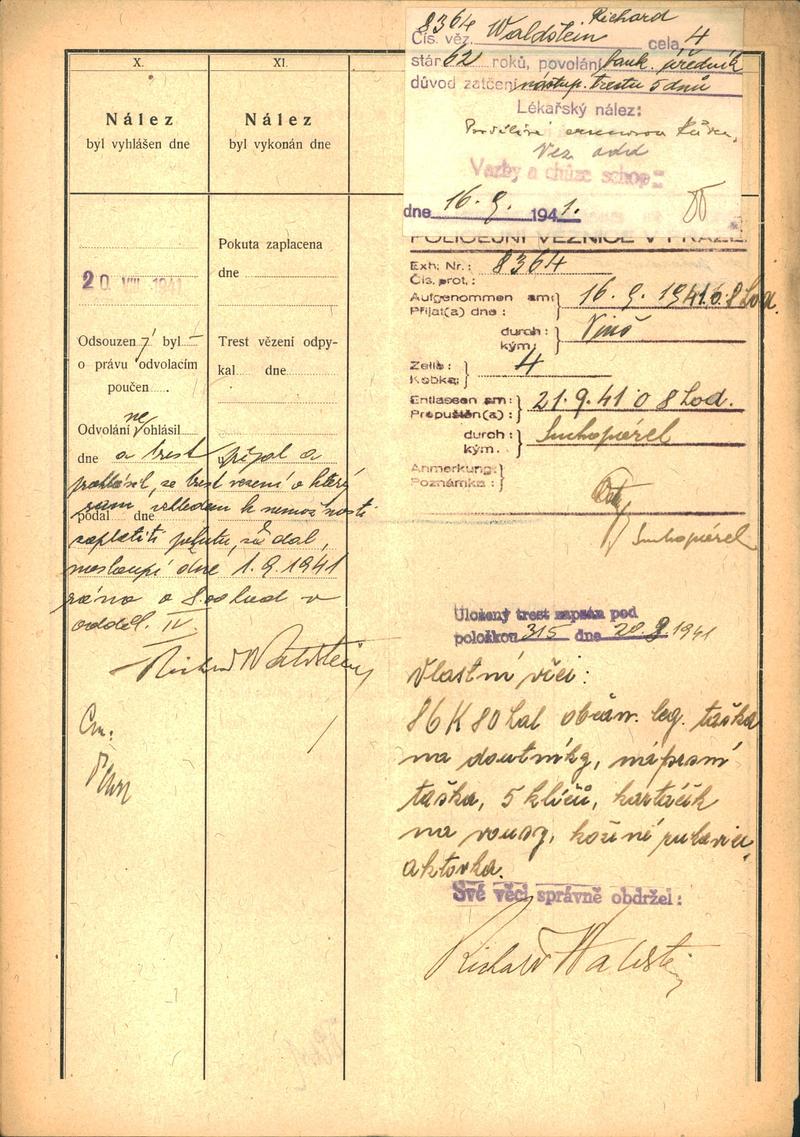 X.
Nález
byl vyhlášen dne
20. VIII. 1941
Odsouzen ý byl
o právu odvolacím
poučen
Odvolání ne ohlásil
dne a trest přijal a
prohlásil, že trest vezení o který
podal dne
sám, vzhledem k nemožnosti
zaplatiti pokutu, žádal,
nastoupí dne 1.9.1941
ráno o 8.00 hod v
odděl. IV.
Richard Waldstein
XI.
Nález
byl vykonán dne
Pokuta zaplacena
dne
Trest vězení odpy-
kal dne
8364 Waldstein Richard
Čís. věz. cela 4
stár 62 roků, povolání bank. úředník
důvod zatčení nástup. trestu 5 dnů
Lékařský nález:
Vazby a chůze schop
dne 16. 9. 1941.
POLICEJNÍ VĚZNICE V PRAZE
Exh. Nr.: 8364
Čís. prot.:
Aufgenommen am: 16. 9. 1941 o 8 hod.
Přijat(a) dne:
durch:
kým:
Zelle: 4
Kobka:
Entlassen am: 21.9.41 o 8 hod.
Propuštěn(a):
durch: Suchopárek
kým.
Anmerkung:
Poznámka:
Suchopárek
Uložený trest zapsán pod
položkou 315 dne 20.8.1941
Vlastní věci:
86 K 80 hal občan. leg. taška
na doutníky, náprsní
taška, 5 klíčů, kartáček
na vousy, kožené rukavice,
aktovka.
Své věci správně obdržel:
Richard Waldstein